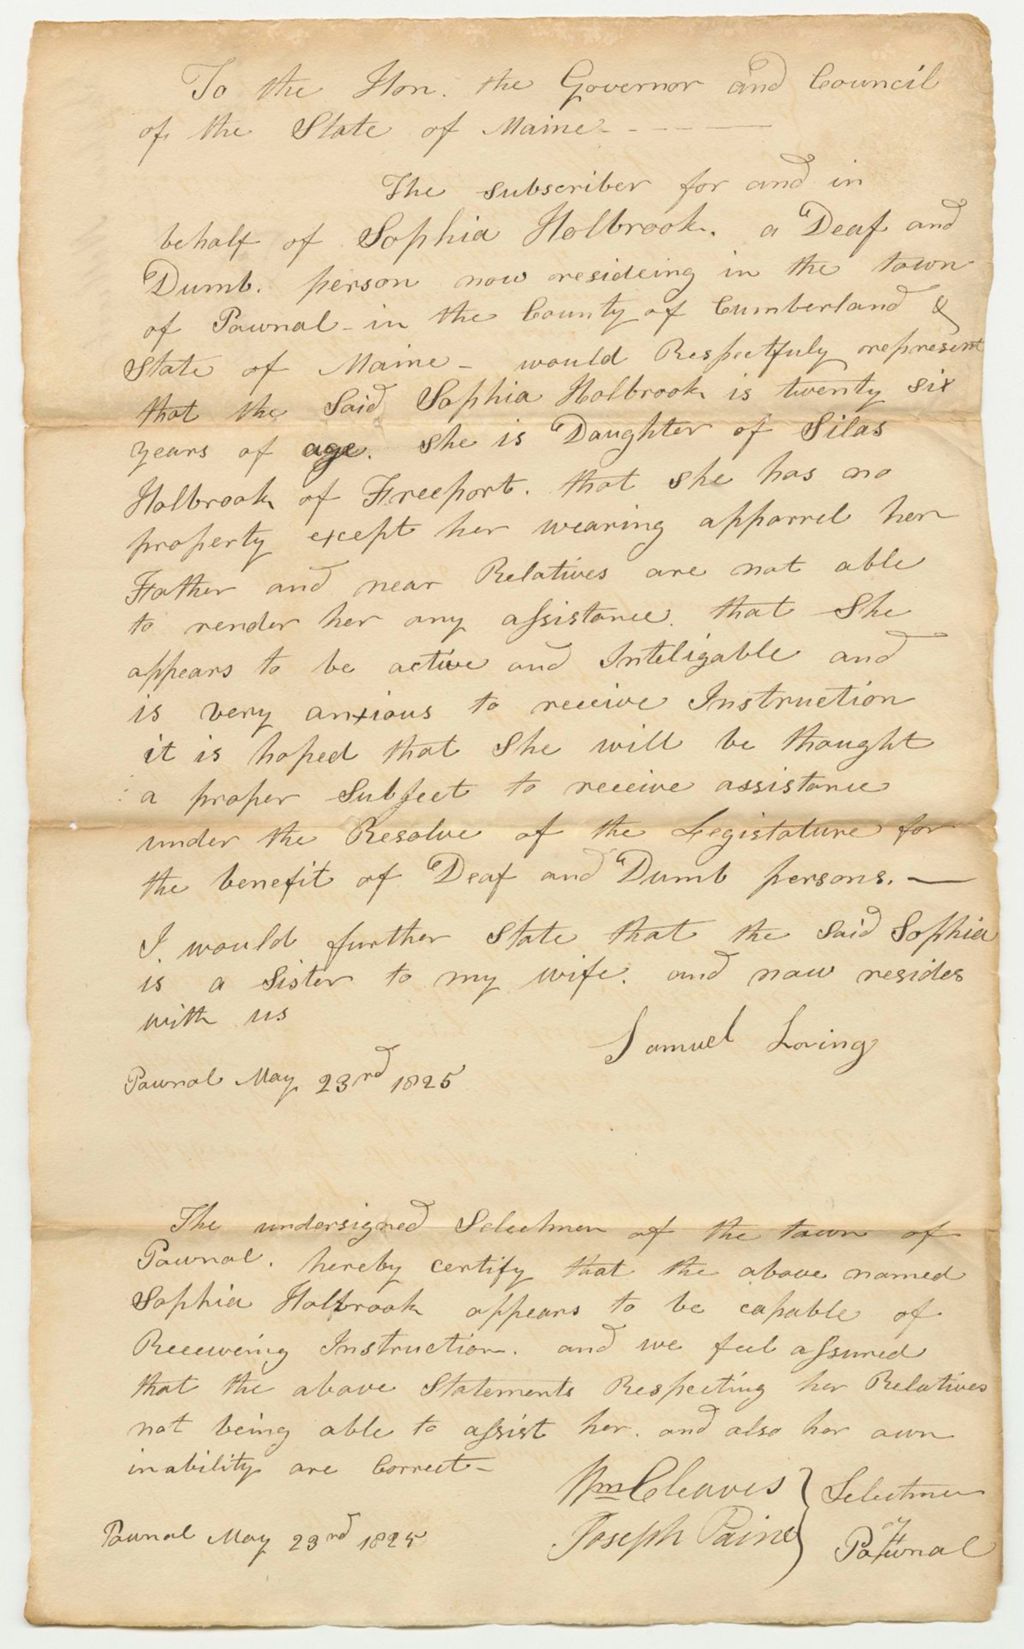 To the Hon. the Governor and Council
of the State of Maine - - - - -
The subscriber for and in
behalf of Sophia Holbrook. a Deaf and
Dumb. person now resideing in the town
of Pownal - in the County of Cumberland &
State of Maine - would Respectfuly represent
that the Said Sophia Holbrook is twenty six
years of age. She is Daughter of Silas
Holbrook of Freeport. that she has no
property except her wearing apparrel her
Father and near Relatives are not able
to render her any assistance. that She
appears to be active and Inteligable and
is very anxious to receive Instruction
it is hoped that She will be thought
a proper Subject to receive assistance
under the Resolve of the Legistature for
the benefit of Deaf and Dumb persons. —
I would further State that the Said Sophia
is a Sister to my wife. and now resides
with us
Samuel Loring
Pownal May 23rd 1825
The undersigned Selectmen of the town of
Pownal. hereby certify that the above named
Sophia Holbrook appears to be capable of
Receiveing Instruction. and we feel assured
that the above Statements Respecting her Relatives
not being able to assist her. and also her own
inability are Correct -
Wm Cleaves } Selectmen
Joseph Paine } of Pownal
Pownal May 23rd 1825